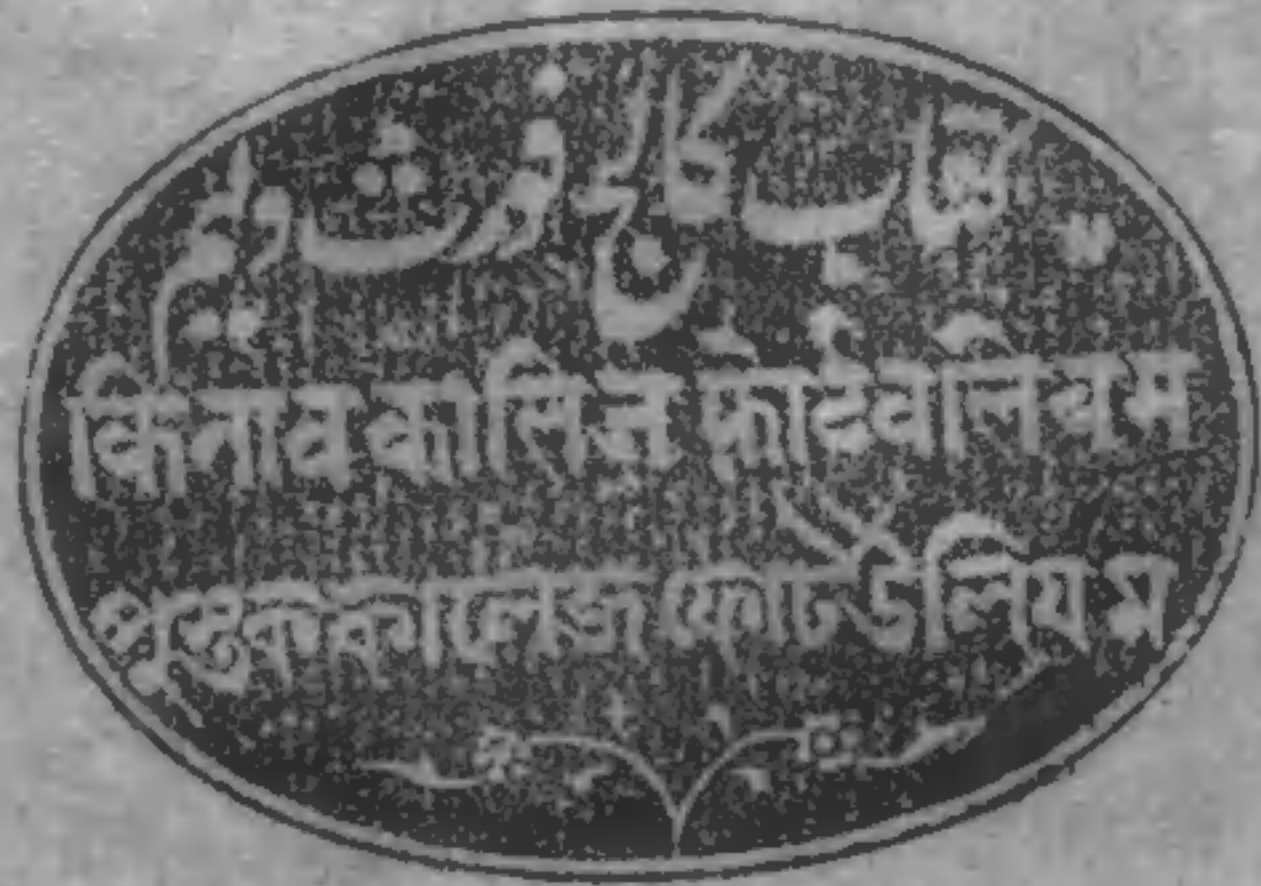 کتاب کالج فورت ولیم
किताब कालिज फोर्ट वलियम
পুস্তক কালেজ ফোর্ট উলিয়ম